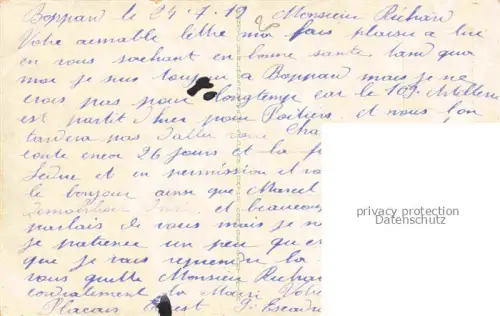 Boppard le 24.7.19 Monsieur Richard
Votre aimable lettre ma fais plaisir a lire
en vous sachant en bonne santé tand qua
moi je suis toujour a Boppard mais je ne
crois pas pour longtemp car le 109 Artillerie
est partit hier pour Poitiers et nous
tardera pas d'aller
conte encor 26 jours et la
et en permission et
le bonjour ainsi que Marcel
et beaucoup
parlais de vous mais je
je patience un peu
que je vais reprendre la
vous quitte Monsieur Richard
cordialement la Main Votre
Placais Ernest 9e
privacy protection
Datenschutz